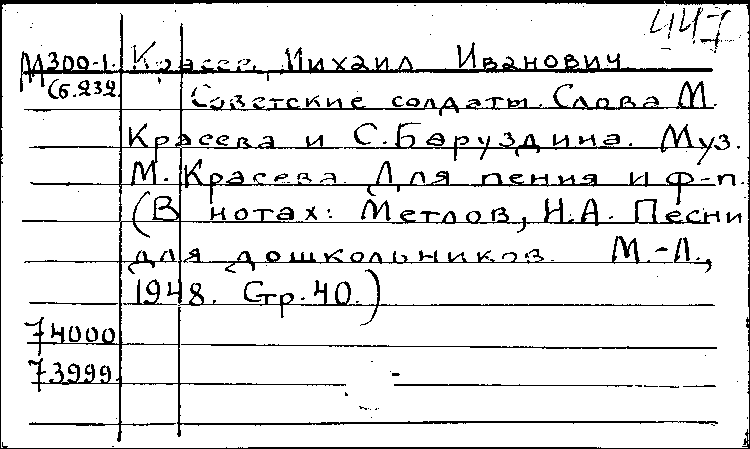 447
М300-1. Красев, Михаил Иванович
Сб.232 Советские солдаты. Слова М.
Красева и С.Баруздина. Муз.
М. Красева. Для пения и ф-п.
(В нотах: Метлов, Н.А. Песни
для дошкольников. М.-Л.,
1948. Стр.40.)
74000
73999